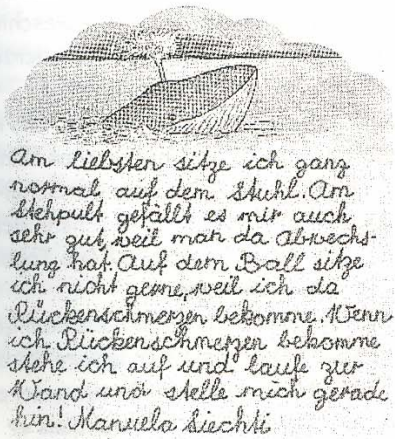 Am liebsten sitze ich ganz
normal auf dem Stuhl. Am
Stehpult gefällt es mir auch
sehr gut, weil man da Abwechs-
lung hat. Auf dem Ball sitze
ich nicht gerne, weil ich da
Rückenschmerzen bekomme. Wenn
ich Rückenschmerzen bekomme
stehe ich auf und laufe zur
Wand und stelle mich gerade
hin! Manuela Siechti